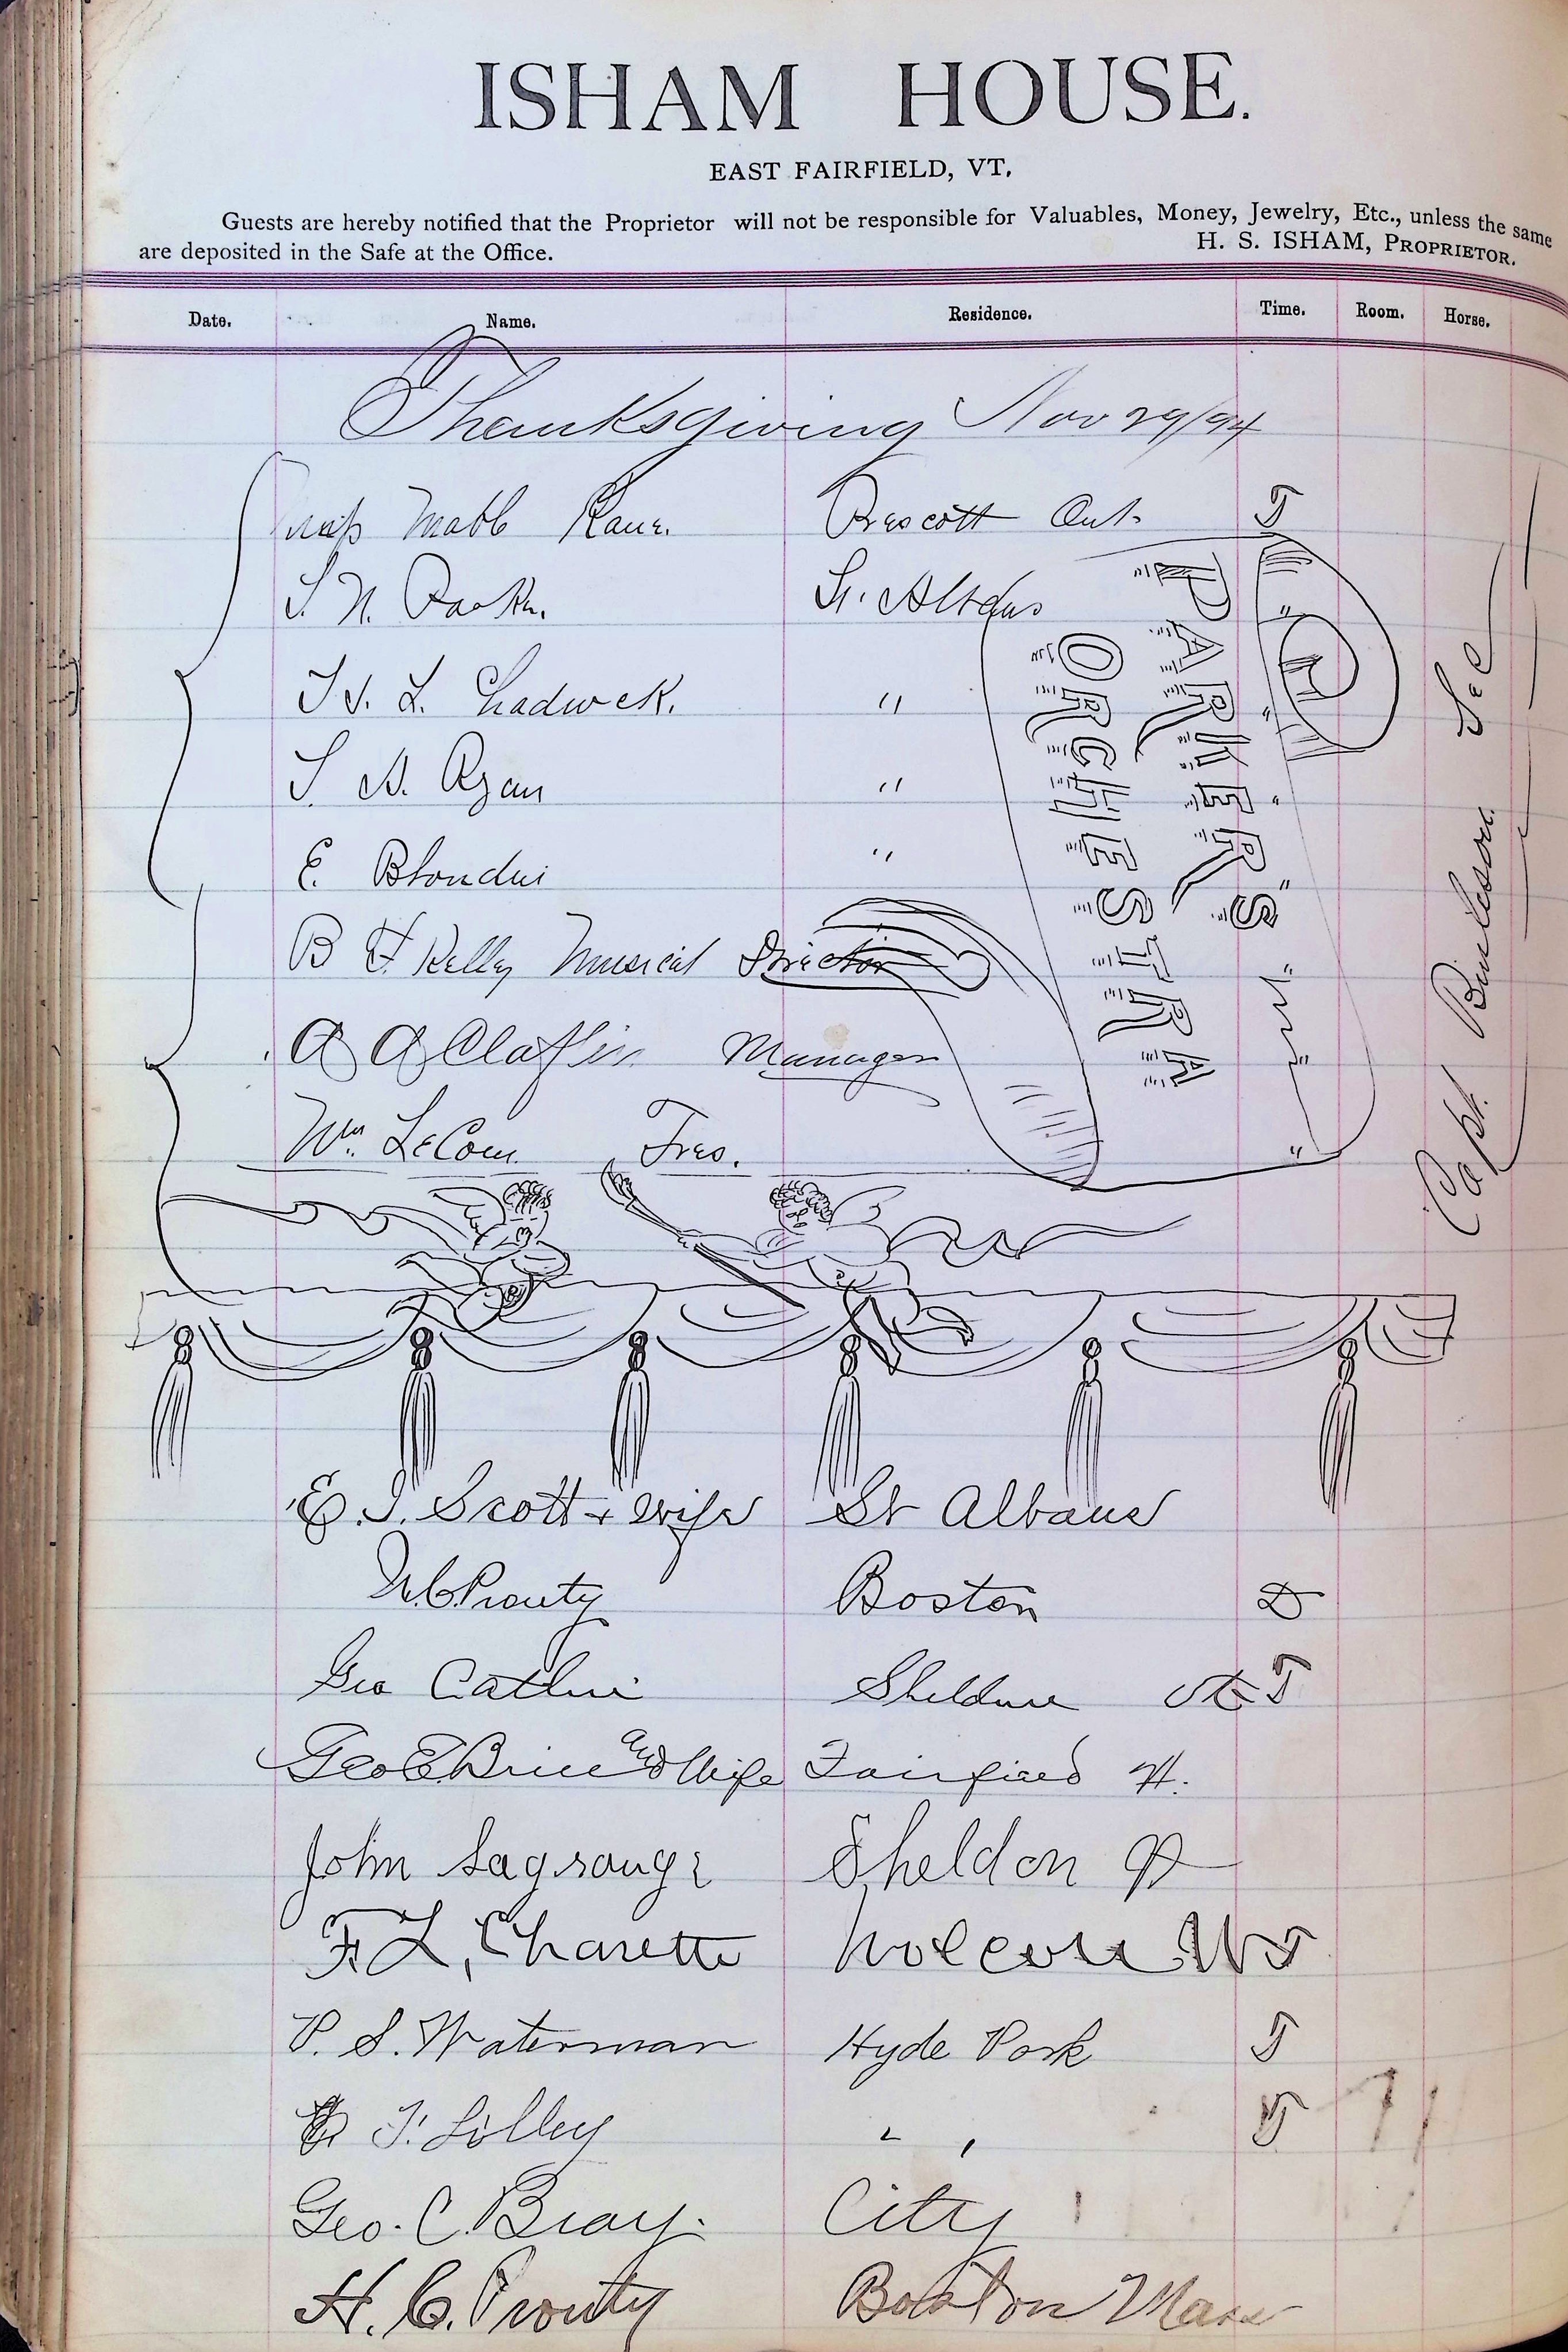 ISHAM HOUSE.
EAST FAIRFIELD, VT.
Guests are hereby notified that the Proprietor will not be responsible for Valuables, Money, Jewelry, Etc., unless the same
are deposited in the Safe at the Office.
H. S. ISHAM, PROPRIETOR.
Date. Name. Residence. Time. Room. Horse.
Thanksgiving Nov 29/94
Prescott Ont. T
St. Albans "
L. Chadwick. " "
Ryan " "
E. Blondin " "
B F Kelly Musical Director "
A A Claflin Manager "
Wm. LeCour. Tres. "
PARKER'S
ORCHESTRA
Capt. Burleson. Sec
E. J. Scott + wife St Albans
H.C. Prouty Boston D
Geo Catlin Sheldon Vt T
Geo E Brice and Wife Fairfield Vt.
John Lagrange Sheldon
F. L, Charette Wolcott Vt T
P. S. Waterman Hyde Park T
T. Lilley " " T
Geo. C. Bray. City
H. C. Prouty Boston Mass